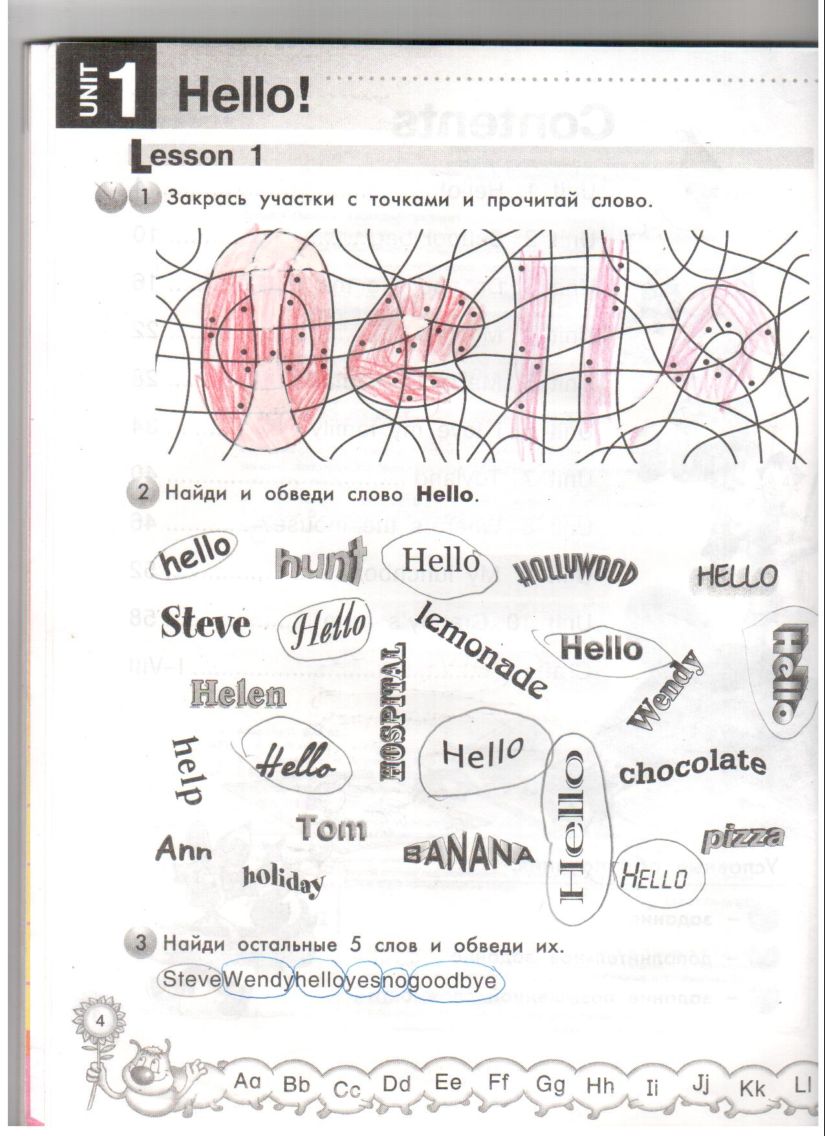 UNIT 1 Hello!
Lesson 1
1 Закрась участки с точками и прочитай слово.
2 Найди и обведи слово Hello.
hello hunt Hello HOLLYWOOD HELLO
Steve Hello lemonade Hello Hello
Helen HOSPITAL Wendy
help Hello Hello Hello chocolate
Ann Tom BANANA HELLO pizza
holiday
3 Найди остальные 5 слов и обведи их.
SteveWendyhelloyesnogoodbye
4
Aa Bb Cc Dd Ee Ff Gg Hh Ii Jj Kk Ll